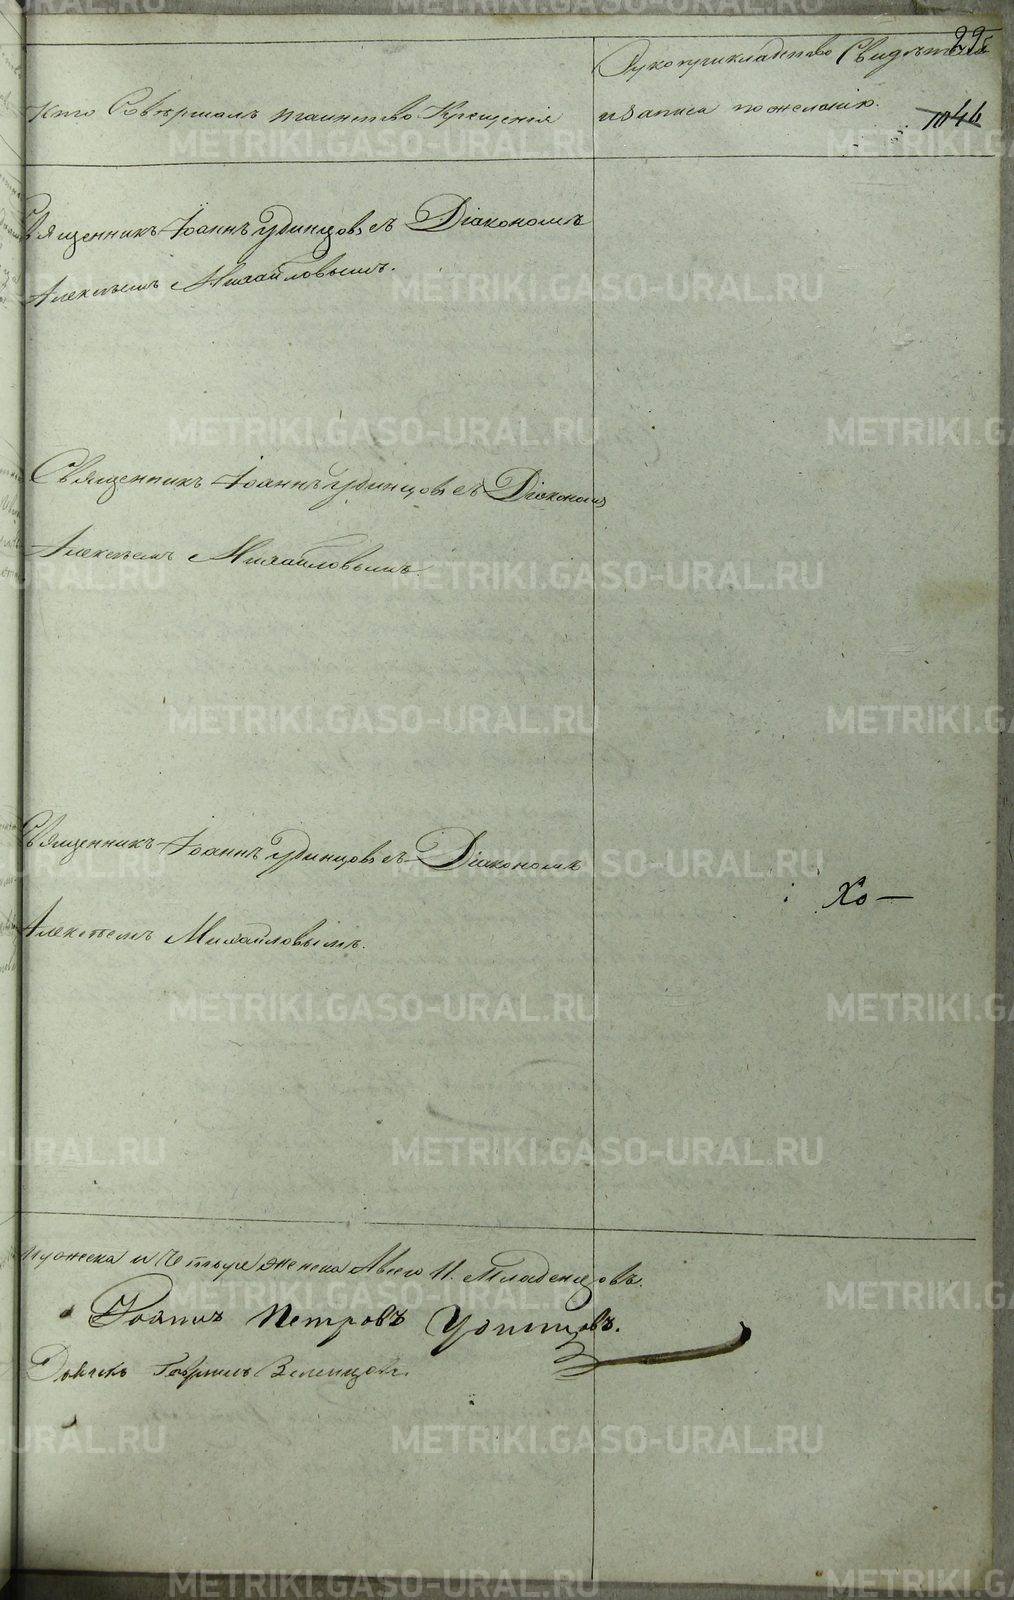 Кто Совершалъ таинство Крещенія
Рукоприкладство Свидѣтелей
и записа по желанію.
1046
Священникъ Іоаннъ Удинцовъ съ Діакономъ
Алексѣемъ Михайловымъ.
Священникъ Іоаннъ Удинцовъ съ Діакономъ
Алексѣемъ Михайловымъ.
Священникъ Іоаннъ Удинцовъ съ Діакономъ
Алексѣемъ Михайловымъ.
Хо —
мужеска и Четыре женска Авсего 11. Младенцовъ.
Іоаннъ Петровъ Удинцовъ.
Дьячекъ Гавріилъ
METRIKI.GASO-URAL.RU